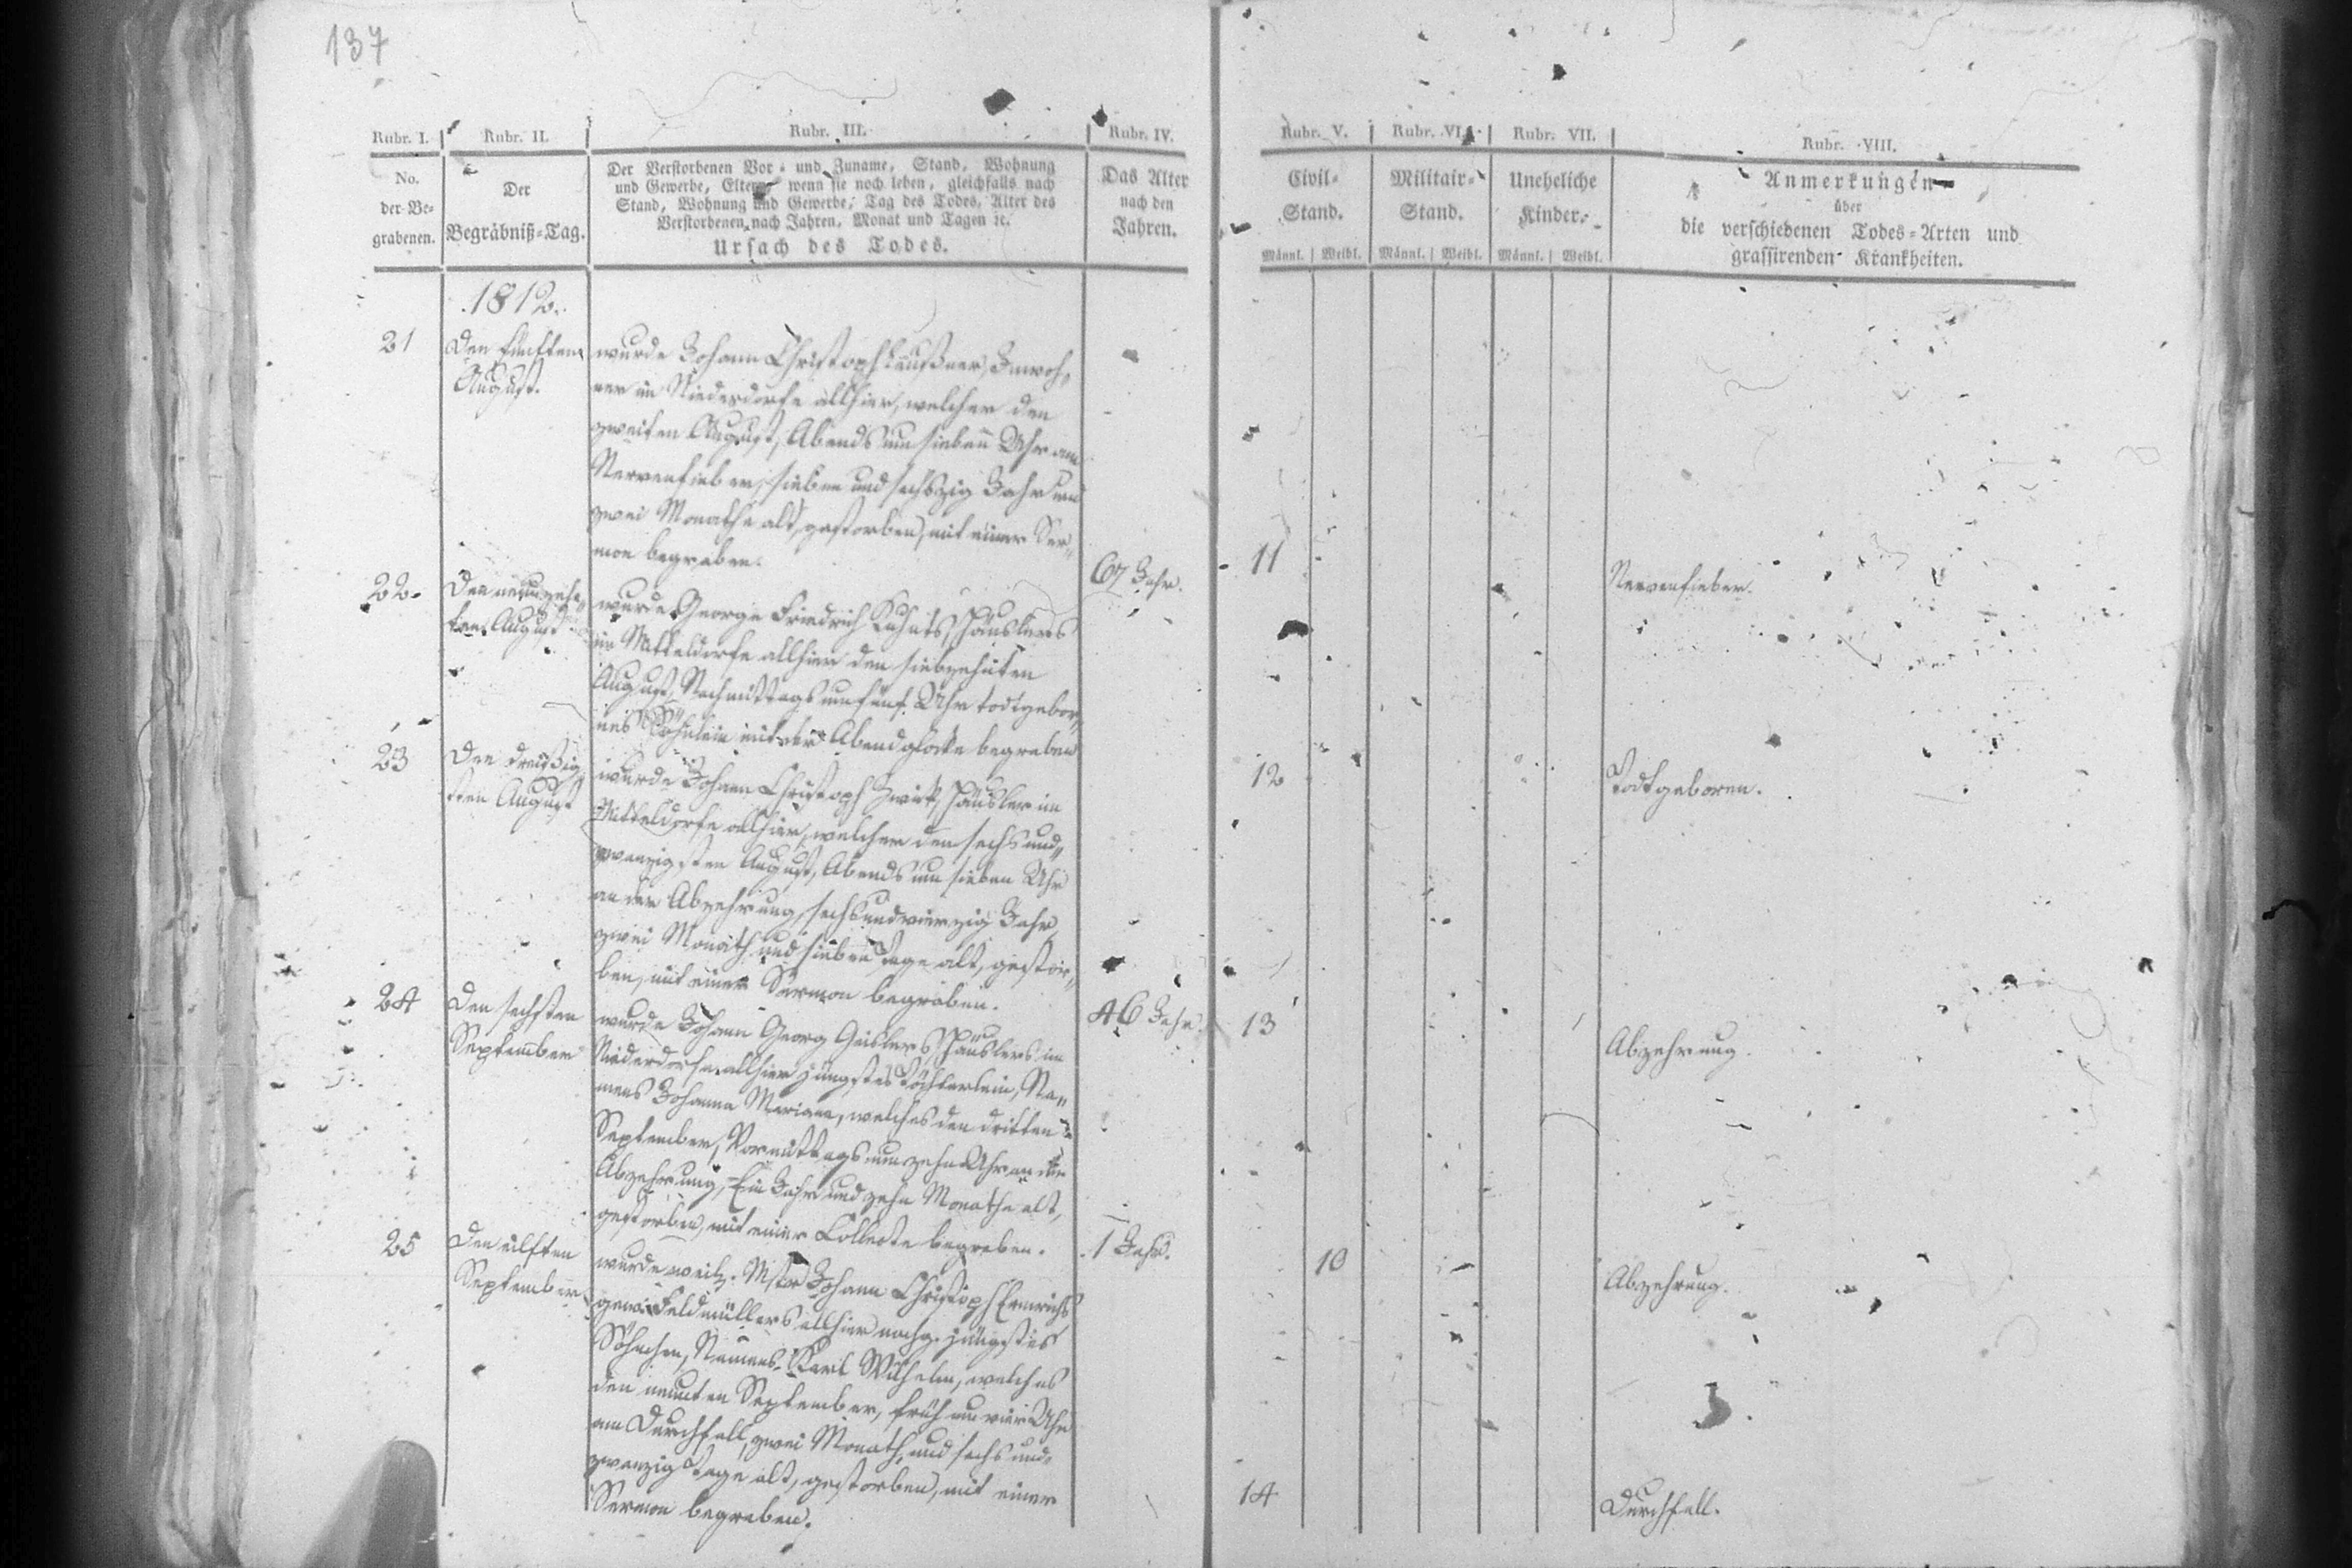 137
Rubr. I.
Rubr. II.
Rubr. III.
Rubr. IV.
Rubr. V.
Rubr. VI.
Rubr. VII.
Rubr. VIII.
No.
der Be-
grabenen.
Der
Begräbniß-Tag.
Der Verstorbenen Vor- und Zuname, Stand, Wohnung
und Gewerbe, Eltern, wenn sie noch leben, gleichfalls nach
Stand, Wohnung und Gewerbe, Tag des Todes, Alter des
Verstorbenen nach Jahren, Monat und Tagen ec.
Ursach des Todes.
Das Alter
nach den
Jahren.
Civil-
Stand.
Militair-
Stand.
Uneheliche
Kinder.
Männl. Weibl. Männl. Weibl. Männl. Weibl.
Anmerkungen
über
die verschiedenen Todes-Arten und
grassirenden Krankheiten.
1812.
21
Den fünften
August.
wurde Johann Christoph Inwoh-
ner im Niederdorfe allhier, welcher den
zweiten August, Abends um sieben Uhr am
Nervenfieber, sieben und sechszig Jahr und
zwei Monathe alt, gestorben, mit einer Ser-
mon begraben.
67 Jahr.
11
Nervenfieber.
22.
Den neunzehn-
ten August
wurde George Friedrich Häuslers
im Mitteldorfe allhier den siebzehnten
August, Nachmittags um fünf Uhr todtgebor-
nes Söhnlein mit der Abendglocke begraben
12
Todtgeboren.
23
Den dreißig-
sten August
wurde Johann Christoph Häusler im
Mitteldorfe allhier, welcher den sechs und-
zwanzigsten August, Abends um sieben Uhr
an der Abzehrung, sechs und vierzig Jahr
zwei Monath und sieben Tage alt, gestor-
ben, mit einer Sermon begraben.
46 Jahr.
13
Abzehrung.
24
Den sechsten
September
wurde Johann Georg Geislers Häuslers im
Niederdorfe allhier jüngstes Töchterlein, Na-
mens Johanna Mariana, welches den dritten
September, Vormittags um zehn Uhr an der
Abzehrung, Ein Jahr und zehn Monathe alt,
gestorben, mit einer Collecte begraben.
1 Jahr.
10
Abzehrung.
25
Den eilften
September
wurde weil. Mstr Johann Christoph
gew. Feldmüllers allhier nachg. jüngstes
Söhnchen, Namens Karl Wilhelm, welches
den neunten September, früh um vier Uhr
am Durchfall, zwei Monath, und sechs und-
zwanzig Tage alt, gestorben, mit einer
Sermon begraben.
14
Durchfall.